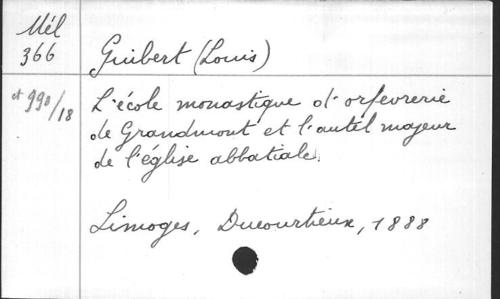 Mél
366
Guibert (Louis)
et 990/18
L'école monastique d'orfevrerie
de Grandmont et l'autel majeur
de l'église abbatiale.
Limoges, Ducourtieux, 1888